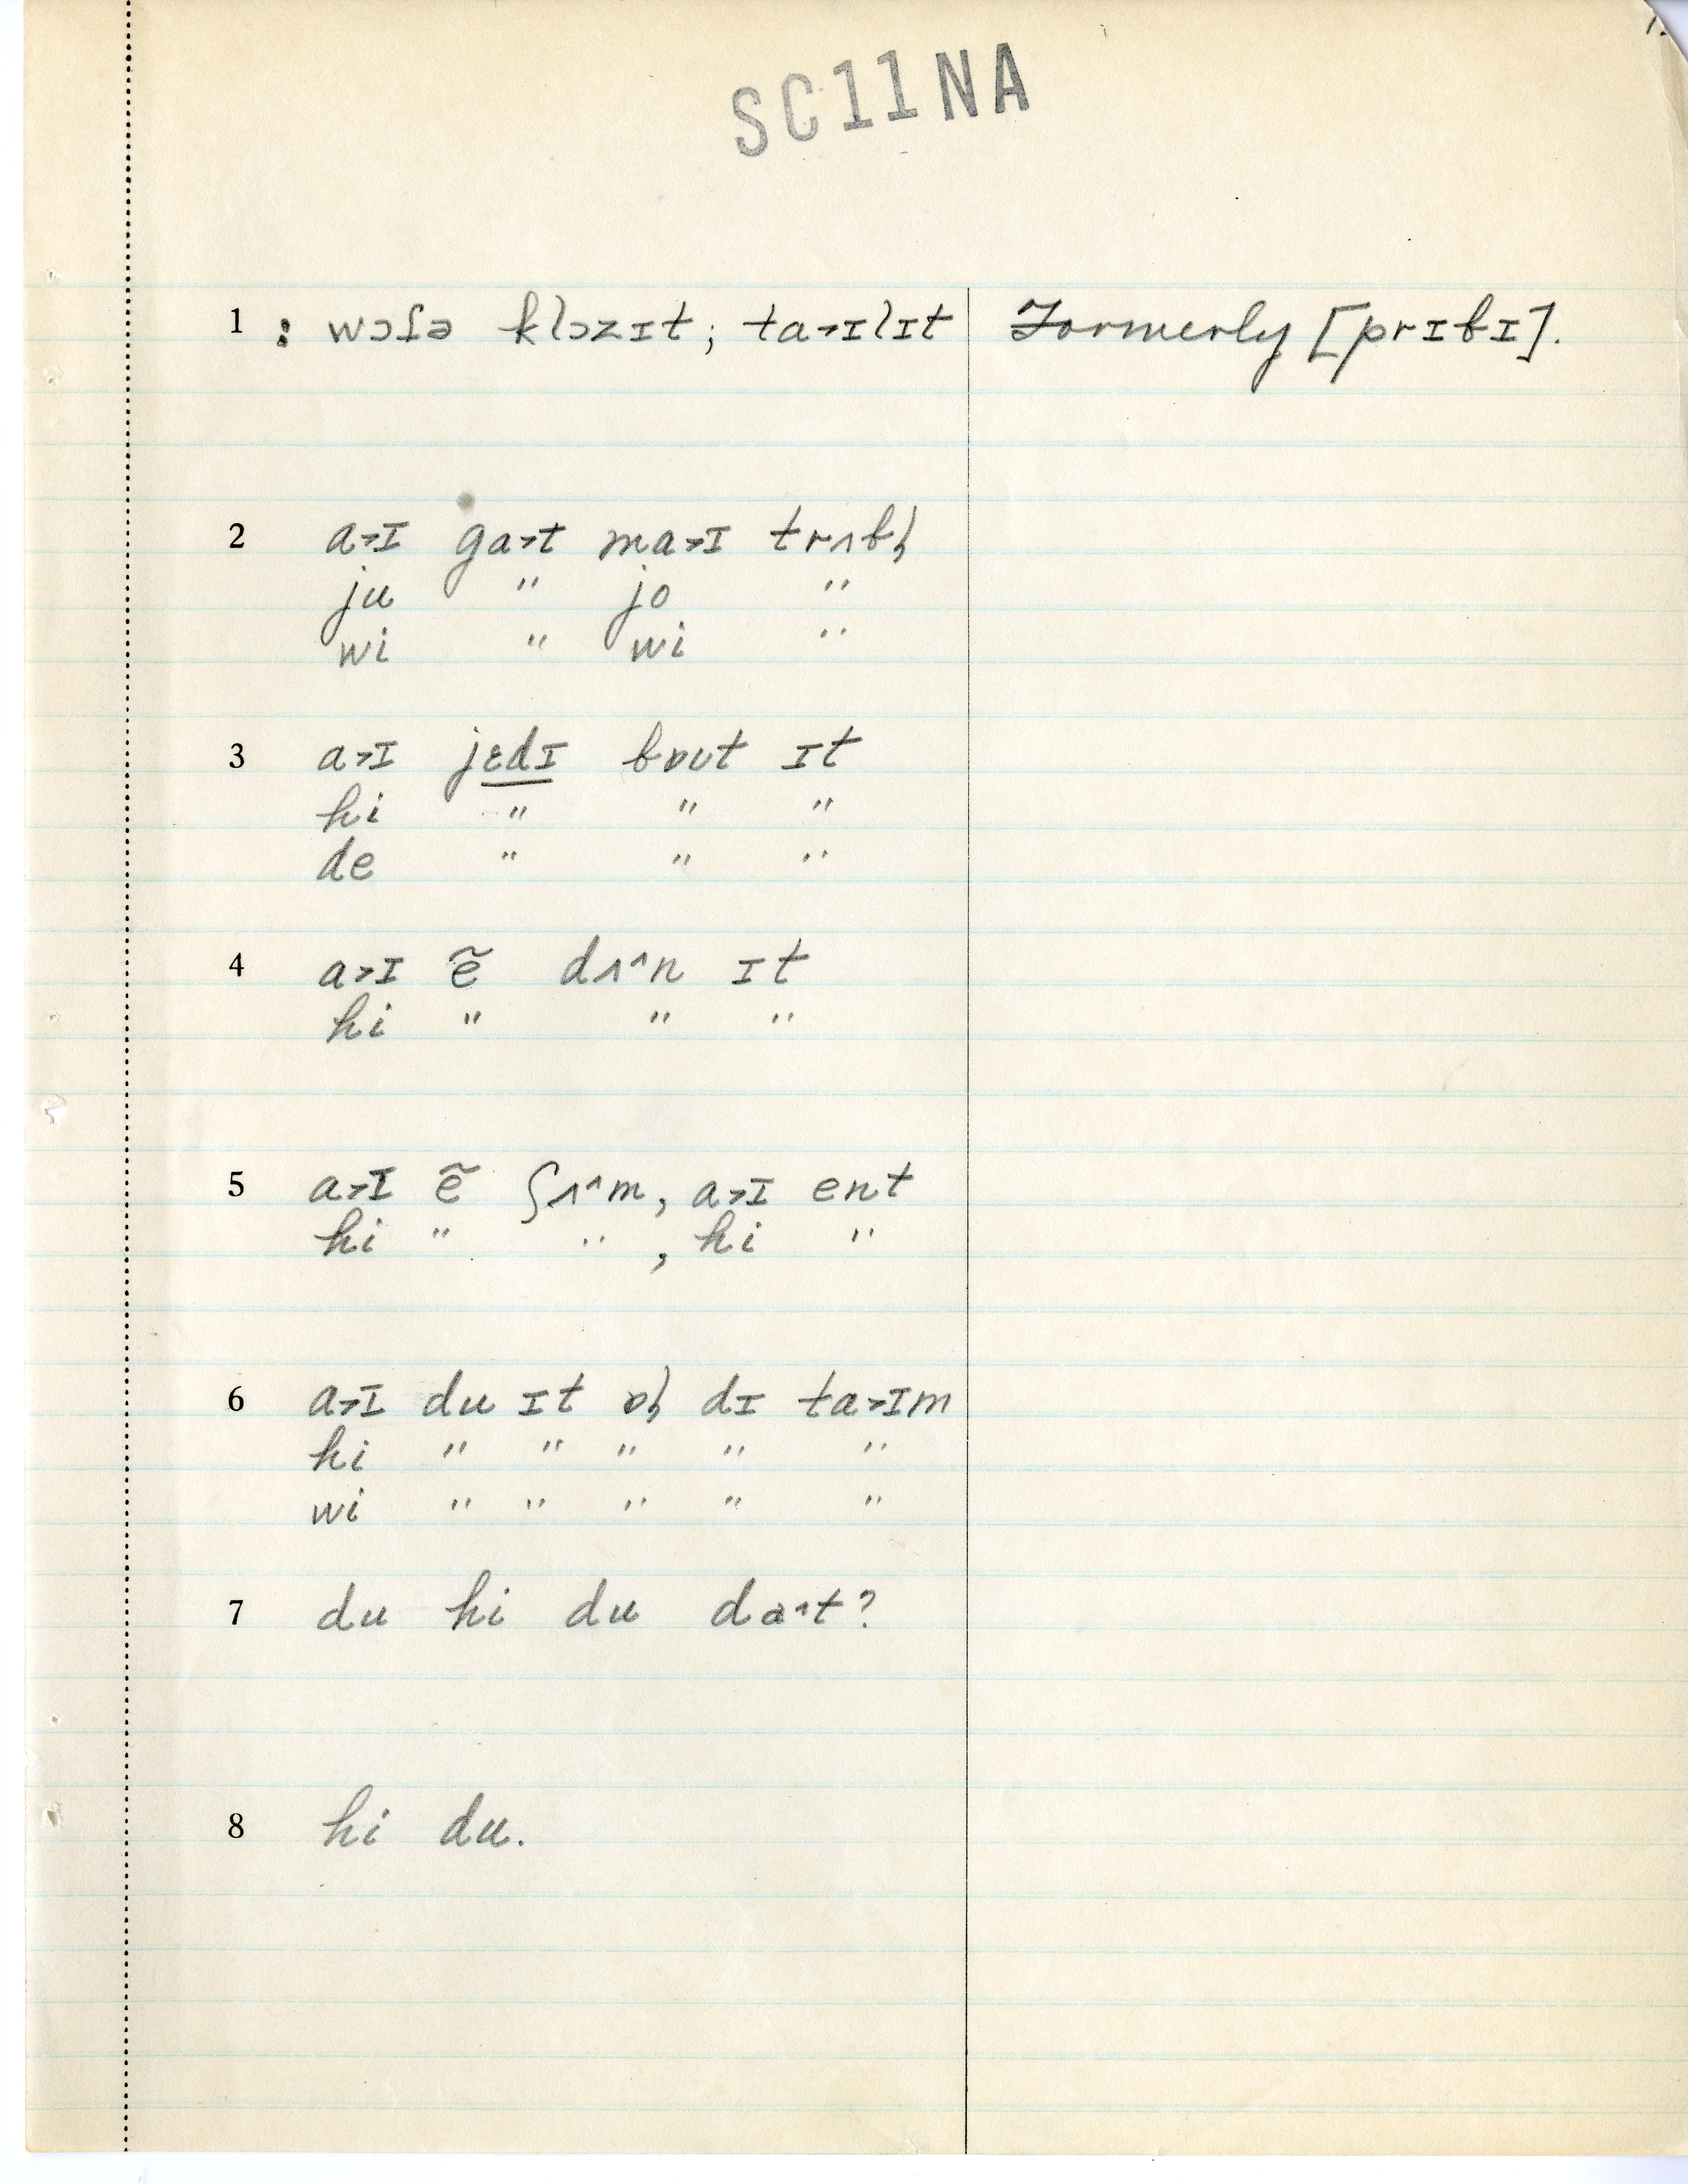 1.
SC11NA
1 : wɔʃə klɔzɪt; ta˃ɪlɪt Formerly [prɪbɪ].
2 a˃ɪ ga˃t ma˃ɪ trʌbl̩
ju " jo "
wi " wi "
3 a˃ɪ jɛdɪ bɒʊt ɪt
hi " " "
de " " "
4 a˃ɪ ẽ dʌ^n ɪt
hi " " "
5 a˃ɪ ẽ ʃʌ^m, a˃ɪ ent
hi " " , hi "
6 a˃ɪ du ɪt dɪ ta˃ɪm
hi " " " " "
wi " " " " "
7 du hi du da^t?
8 hi du.